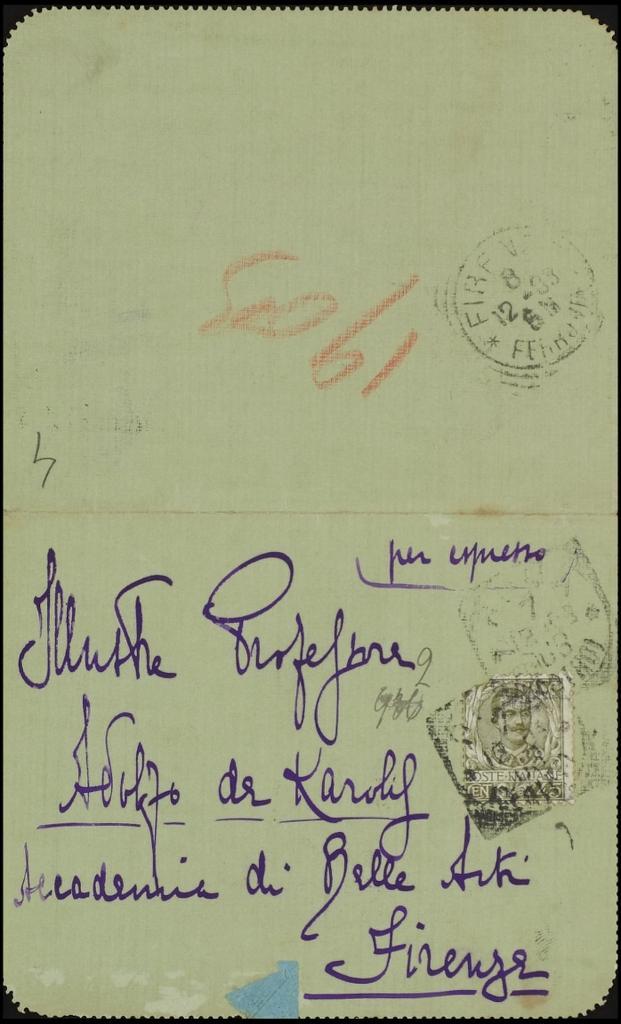 FIRENZE
8
12
FERROVIA
4
per espresso
Illustre Professore
2
Adolfo de Karolis
POSTE ITALIANE
45
Accademia di Belle Arti
Firenze